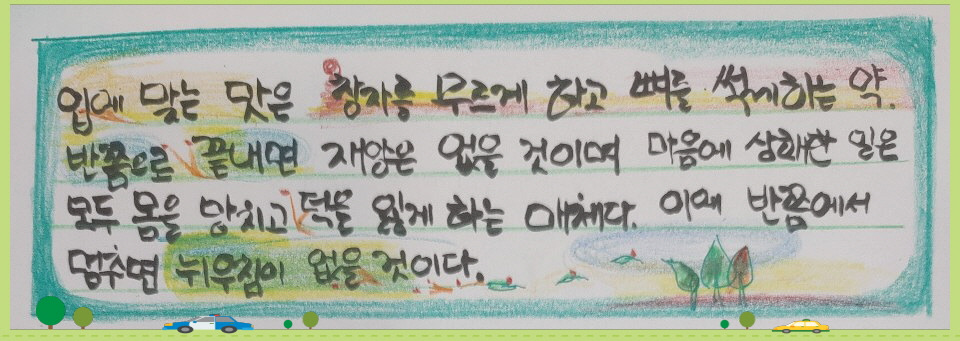 입에 맞는 맛은 창자를 무르게 하고 뼈를 썩게하는 약.
반쯤으로 끝내면 재앙은 없을 것이며 마음에 상쾌한 일은
모두 몸을 망치고 덕을 잃게 하는 매체다. 이때 반쯤에서
멈추면 뉘우침이 없을 것이다.